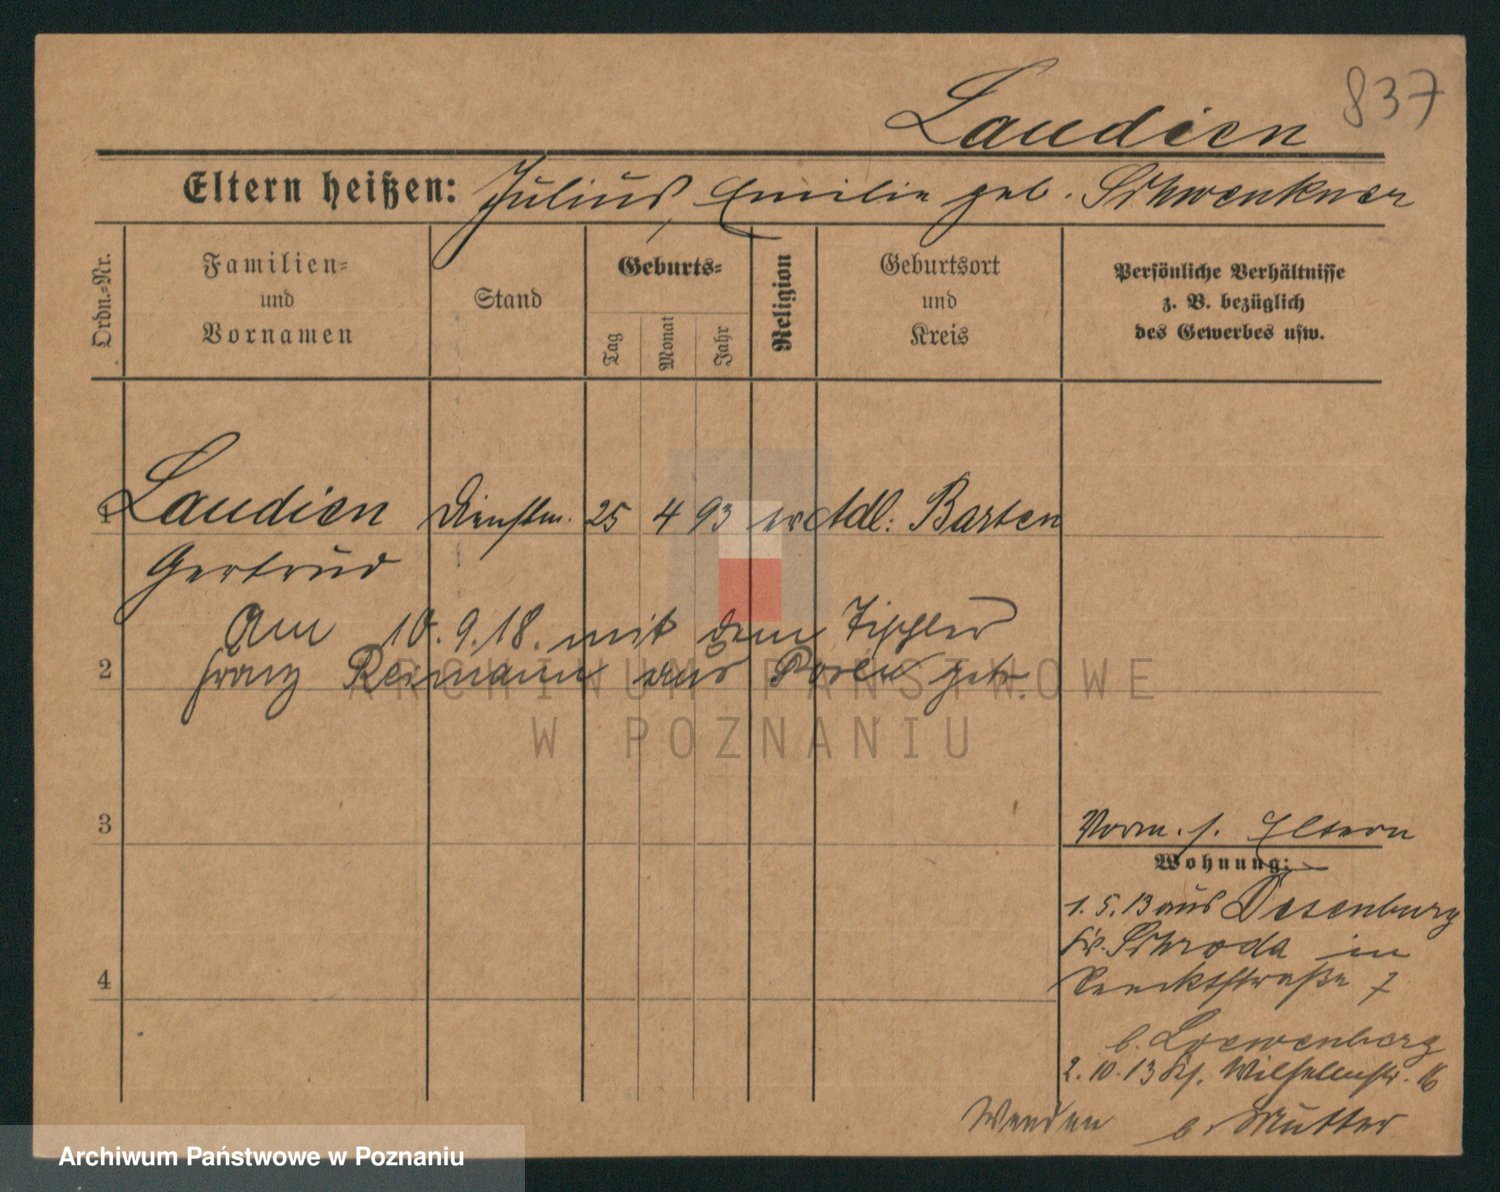 Laudien 837
Eltern heißen: Julius, Emilie geb. Schwenkner
Ordn.-Nr.
Familien-
und
Vornamen
Stand
Geburts-
Tag
Monat
Jahr
Religion
Geburtsort
und
Kreis
Persönliche Verhältnisse
z. B. bezüglich
des Gewerbes usw.
1 Laudien Dienstm. 25 4 93 ev Adl: Barten
Gertrud
Am 10.9.18. mit dem Tischler
2 Franz Reimann aus Posen getr.
ARCHIWUM PAŃSTWOWE
W POZNANIU
3
4
Vorm. s. Eltern
Wohnung:
1.5.13 aus Desenburg
Kr. Schroda in
7
b. Loewenberg
2.10.13 Wilhelmstr. 16
b. Mutter
Wenden
Archiwum Państwowe w Poznaniu